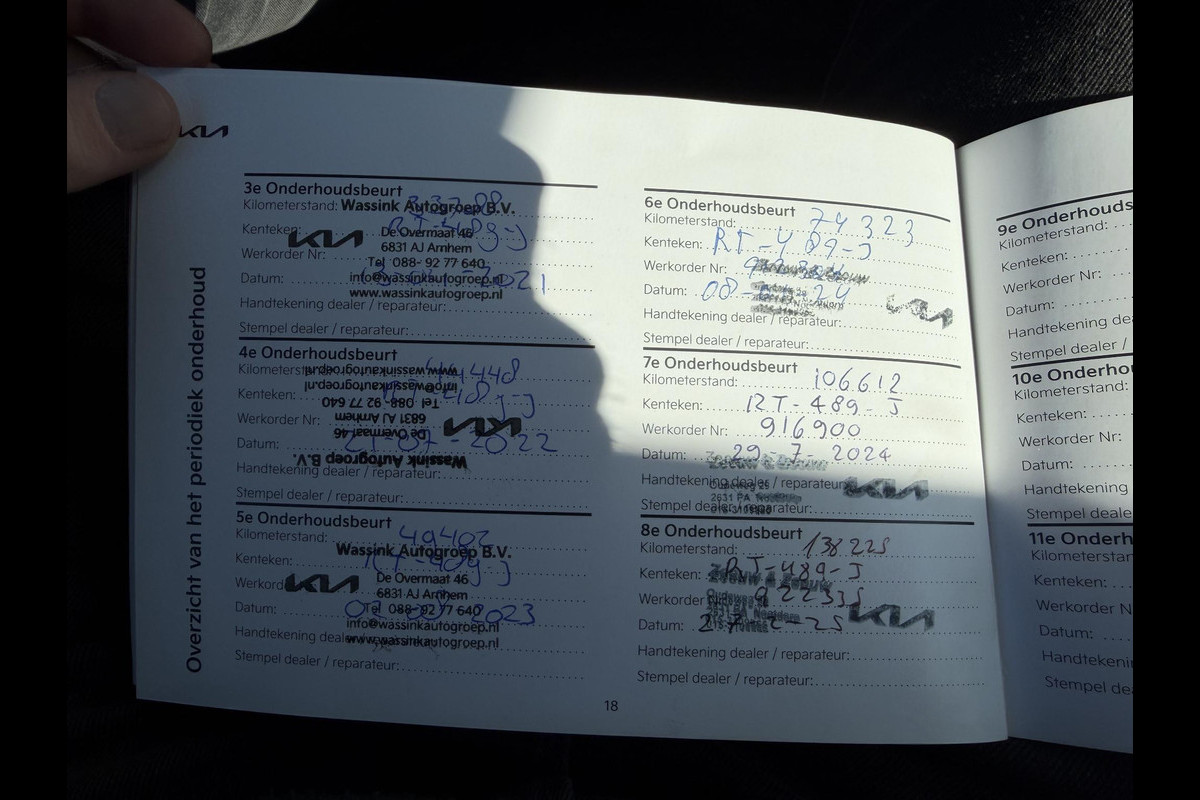 KIA
Overzicht van het periodiek onderhoud
3e Onderhoudsbeurt
Kilometerstand:
Wassink Autogroep B.V.
Kenteken:
KIA
De Overmaat 46
6831 AJ Arnhem
Werkorder Nr:
Tel 088- 92 77 640
Datum: 2021
info@wassinkautogroep.nl
www.wassinkautogroep.nl
Handtekening dealer / reparateur:
Stempel dealer / reparateur:
4e Onderhoudsbeurt
www.wassinkautogroep.nl
info@wassinkautogroep.nl
Kenteken:
Tel 088- 92 77 640
Werkorder Nr:
6831 AJ Arnhem
KIA
De Overmaat 46
Datum: 07 - 2022
Wassink Autogroep B.V.
Handtekening dealer / reparateur:
Stempel dealer / reparateur:
5e Onderhoudsbeurt
Kilometerstand: 49402
Wassink Autogroep B.V.
Kenteken:
KIA
De Overmaat 46
6831 AJ Arnhem
Datum: 2023
Tel 088- 92 77 640
info@wassinkautogroep.nl
www.wassinkautogroep.nl
Stempel dealer / reparateur:
6e Onderhoudsbeurt
Kilometerstand: 74323
Kenteken: RT-489-J
Werkorder Nr:
Datum: 24
KIA
Handtekening dealer / reparateur:
Stempel dealer / reparateur:
7e Onderhoudsbeurt
Kilometerstand: 106612
Kenteken: RT-489-J
Werkorder Nr: 916900
Datum: 29-7-2024
Handtekening dealer / reparateur:
Oudeweg 25
KIA
2631 PA
Stempel dealer / reparateur:
8e Onderhoudsbeurt
Kilometerstand: 138225
Kenteken: RT-489-J
Werkorder 922335
KIA
Datum:
Handtekening dealer / reparateur:
Stempel dealer / reparateur:
18
9e Onderhouds
Kilometerstand:
Kenteken:
Werkorder Nr:
Datum:
Handtekening de
Stempel dealer /
10e Onderho
Kilometerstand:
Kenteken:
Werkorder Nr:
Datum:
Handtekening
Stempel deale
11e Onderh
Kilometerstan
Kenteken:
Werkorder N
Datum:
Handtekeni
Stempel de